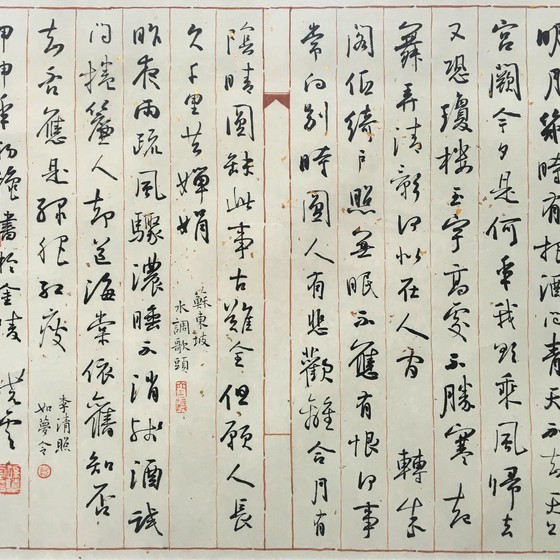 明月幾時有把酒问青天不知天上
宮闕今夕是何年我欲乘風歸去
又恐瓊樓玉宇高處不勝寒起
舞弄清影何似在人间 轉朱
閣低綺户照無眠不應有恨何事
常向别時圓人有悲歡離合月有
陰晴圓缺此事古難全但願人長
久千里共嬋娟
蘇東坡
水調歌頭
昨夜雨疏風驟濃睡不消残酒試
问捲簾人却道海棠依舊知否
知否應是绿肥红瘦
李清照
如夢令
甲申年初書於金陵